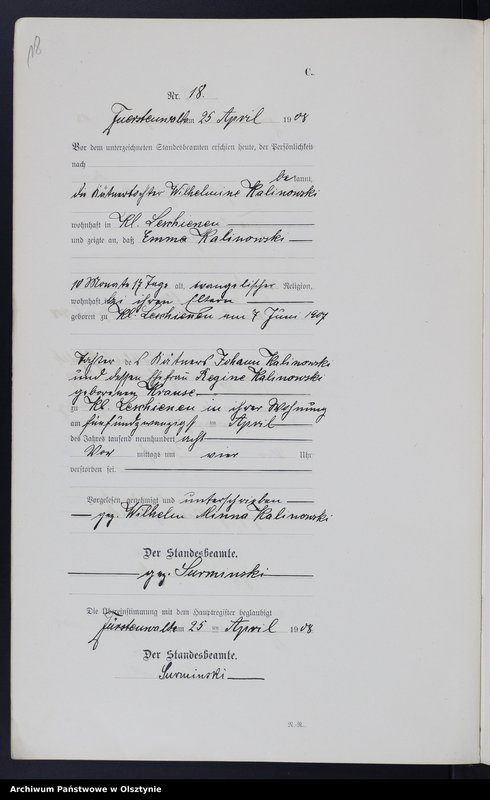 18
C.
Nr. 18.
Fuerstenwalde am 25 April 1908
Vor dem unterzeichneten Standesbeamten erschien heute, der Persönlichkeit
nach bekannt,
die Kätnertochter Wilhelmine Kalinowski
wohnhaft in Kl. Leschienen
und zeigte an, daß Emma Kalinowski
10 Monate 17 Tage alt, evangelischer Religion,
wohnhaft bei ihren Eltern
geboren zu Kl. Leschienen am 7 Juni 1907
Tochter des Kätners Johann Kalinowski
und dessen Ehefrau Regine Kalinowski
geborenen Krause
zu Kl. Leschienen in ihrer Wohnung
am fünfundzwanzigst en April
des Jahres tausend neunhundert acht
Vor mittags um vier Uhr
verstorben sei.
Vorgelesen, genehmigt und unterschrieben
gez. Wilhelm Minna Kalinowski
Der Standesbeamte.
gez. Surminski
Die Übereinstimmung mit dem Hauptregister beglaubigt
Fürstenwalde am 25 ten April 1908
Der Standesbeamte.
Surminski
N.-R.
Archiwum Państwowe w Olsztynie